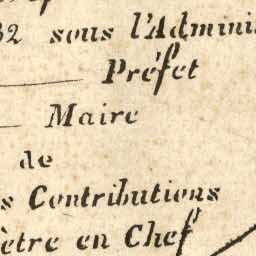 32 sous l'Adminis
Préfet
Maire
de
s Contributions
ètre en Chef